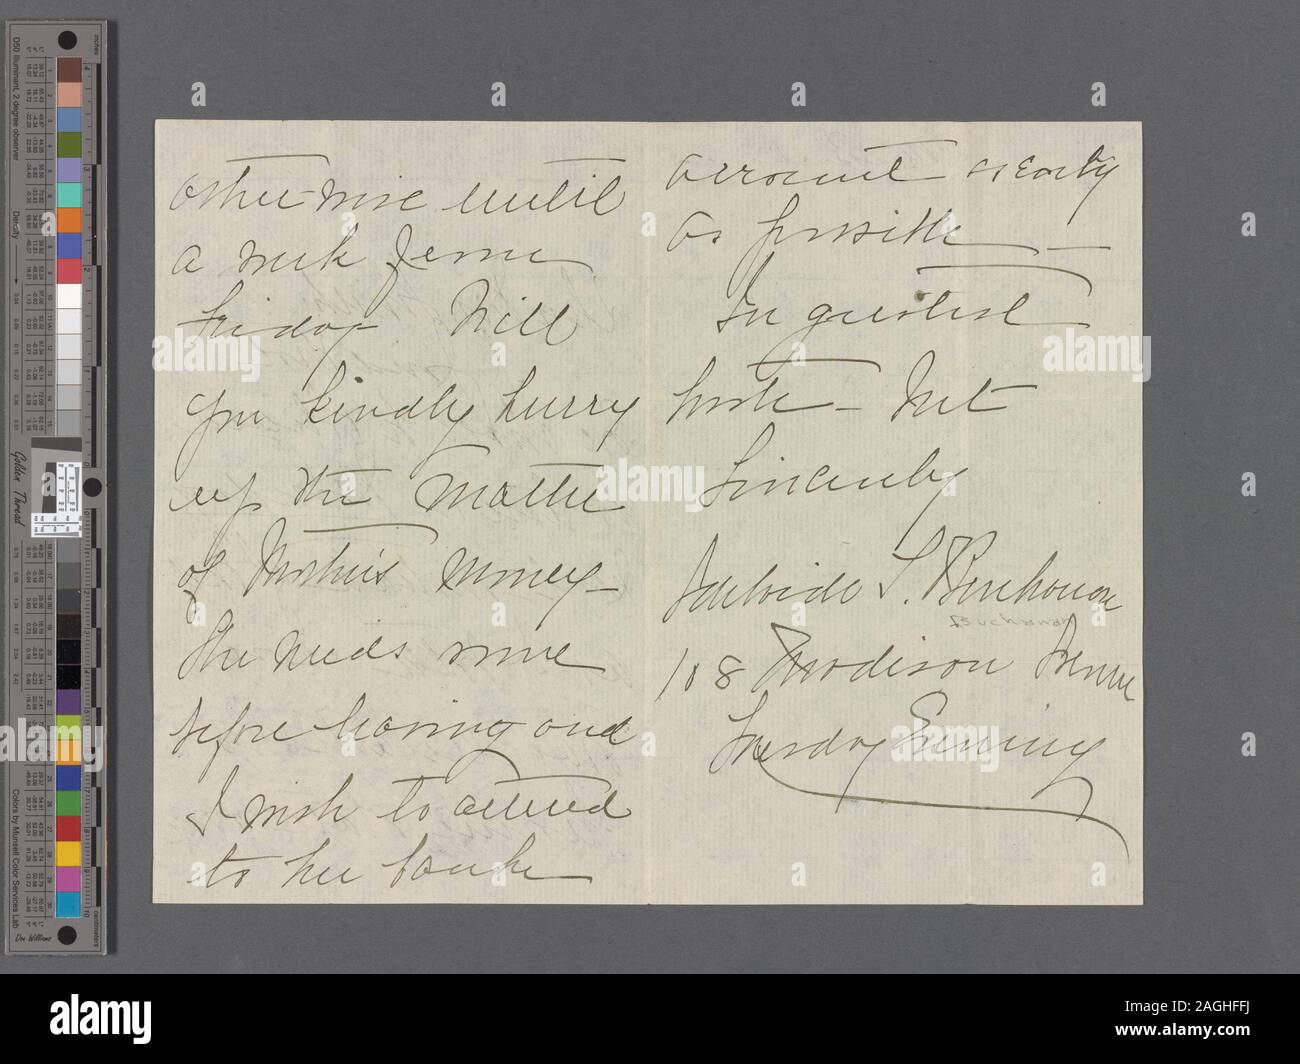 otherwise until
a week from
Friday Will
you kindly hurry
up the matter
of Mother's money—
She needs some
before leaving and
I wish to attend
to her bank
account as early
as possible —
In greatest
haste — Most
Sincerely
Adelaide S. Buchanan
Buchanan
108 Madison Avenue
Tuesday Evening
D50 Illuminant, 2 degree observer
Density
Golden Thread
Colors by Munsell Color Services Lab
inches
centimeters
alamy
alamy
Image ID: 2AGHFFJ
www.alamy.com